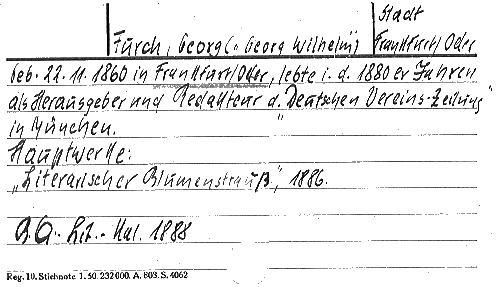 Stadt
Furch, Georg (= Georg Wilhelm) Frankfurt/Oder
Geb. 22. 11. 1860 in Frankfurt/Oder, lebte i. d. 1880 er Jahren
als Herausgeber und Redakteur d. "Deutschen Vereins-Zeitung"
in München.
Hauptwerke:
„Literarischer Blumenstrauß", 1886.
Lit.- Kal. 1888
Reg. 10. Stichnote 1. 50. 232000. A. 803. S. 4062